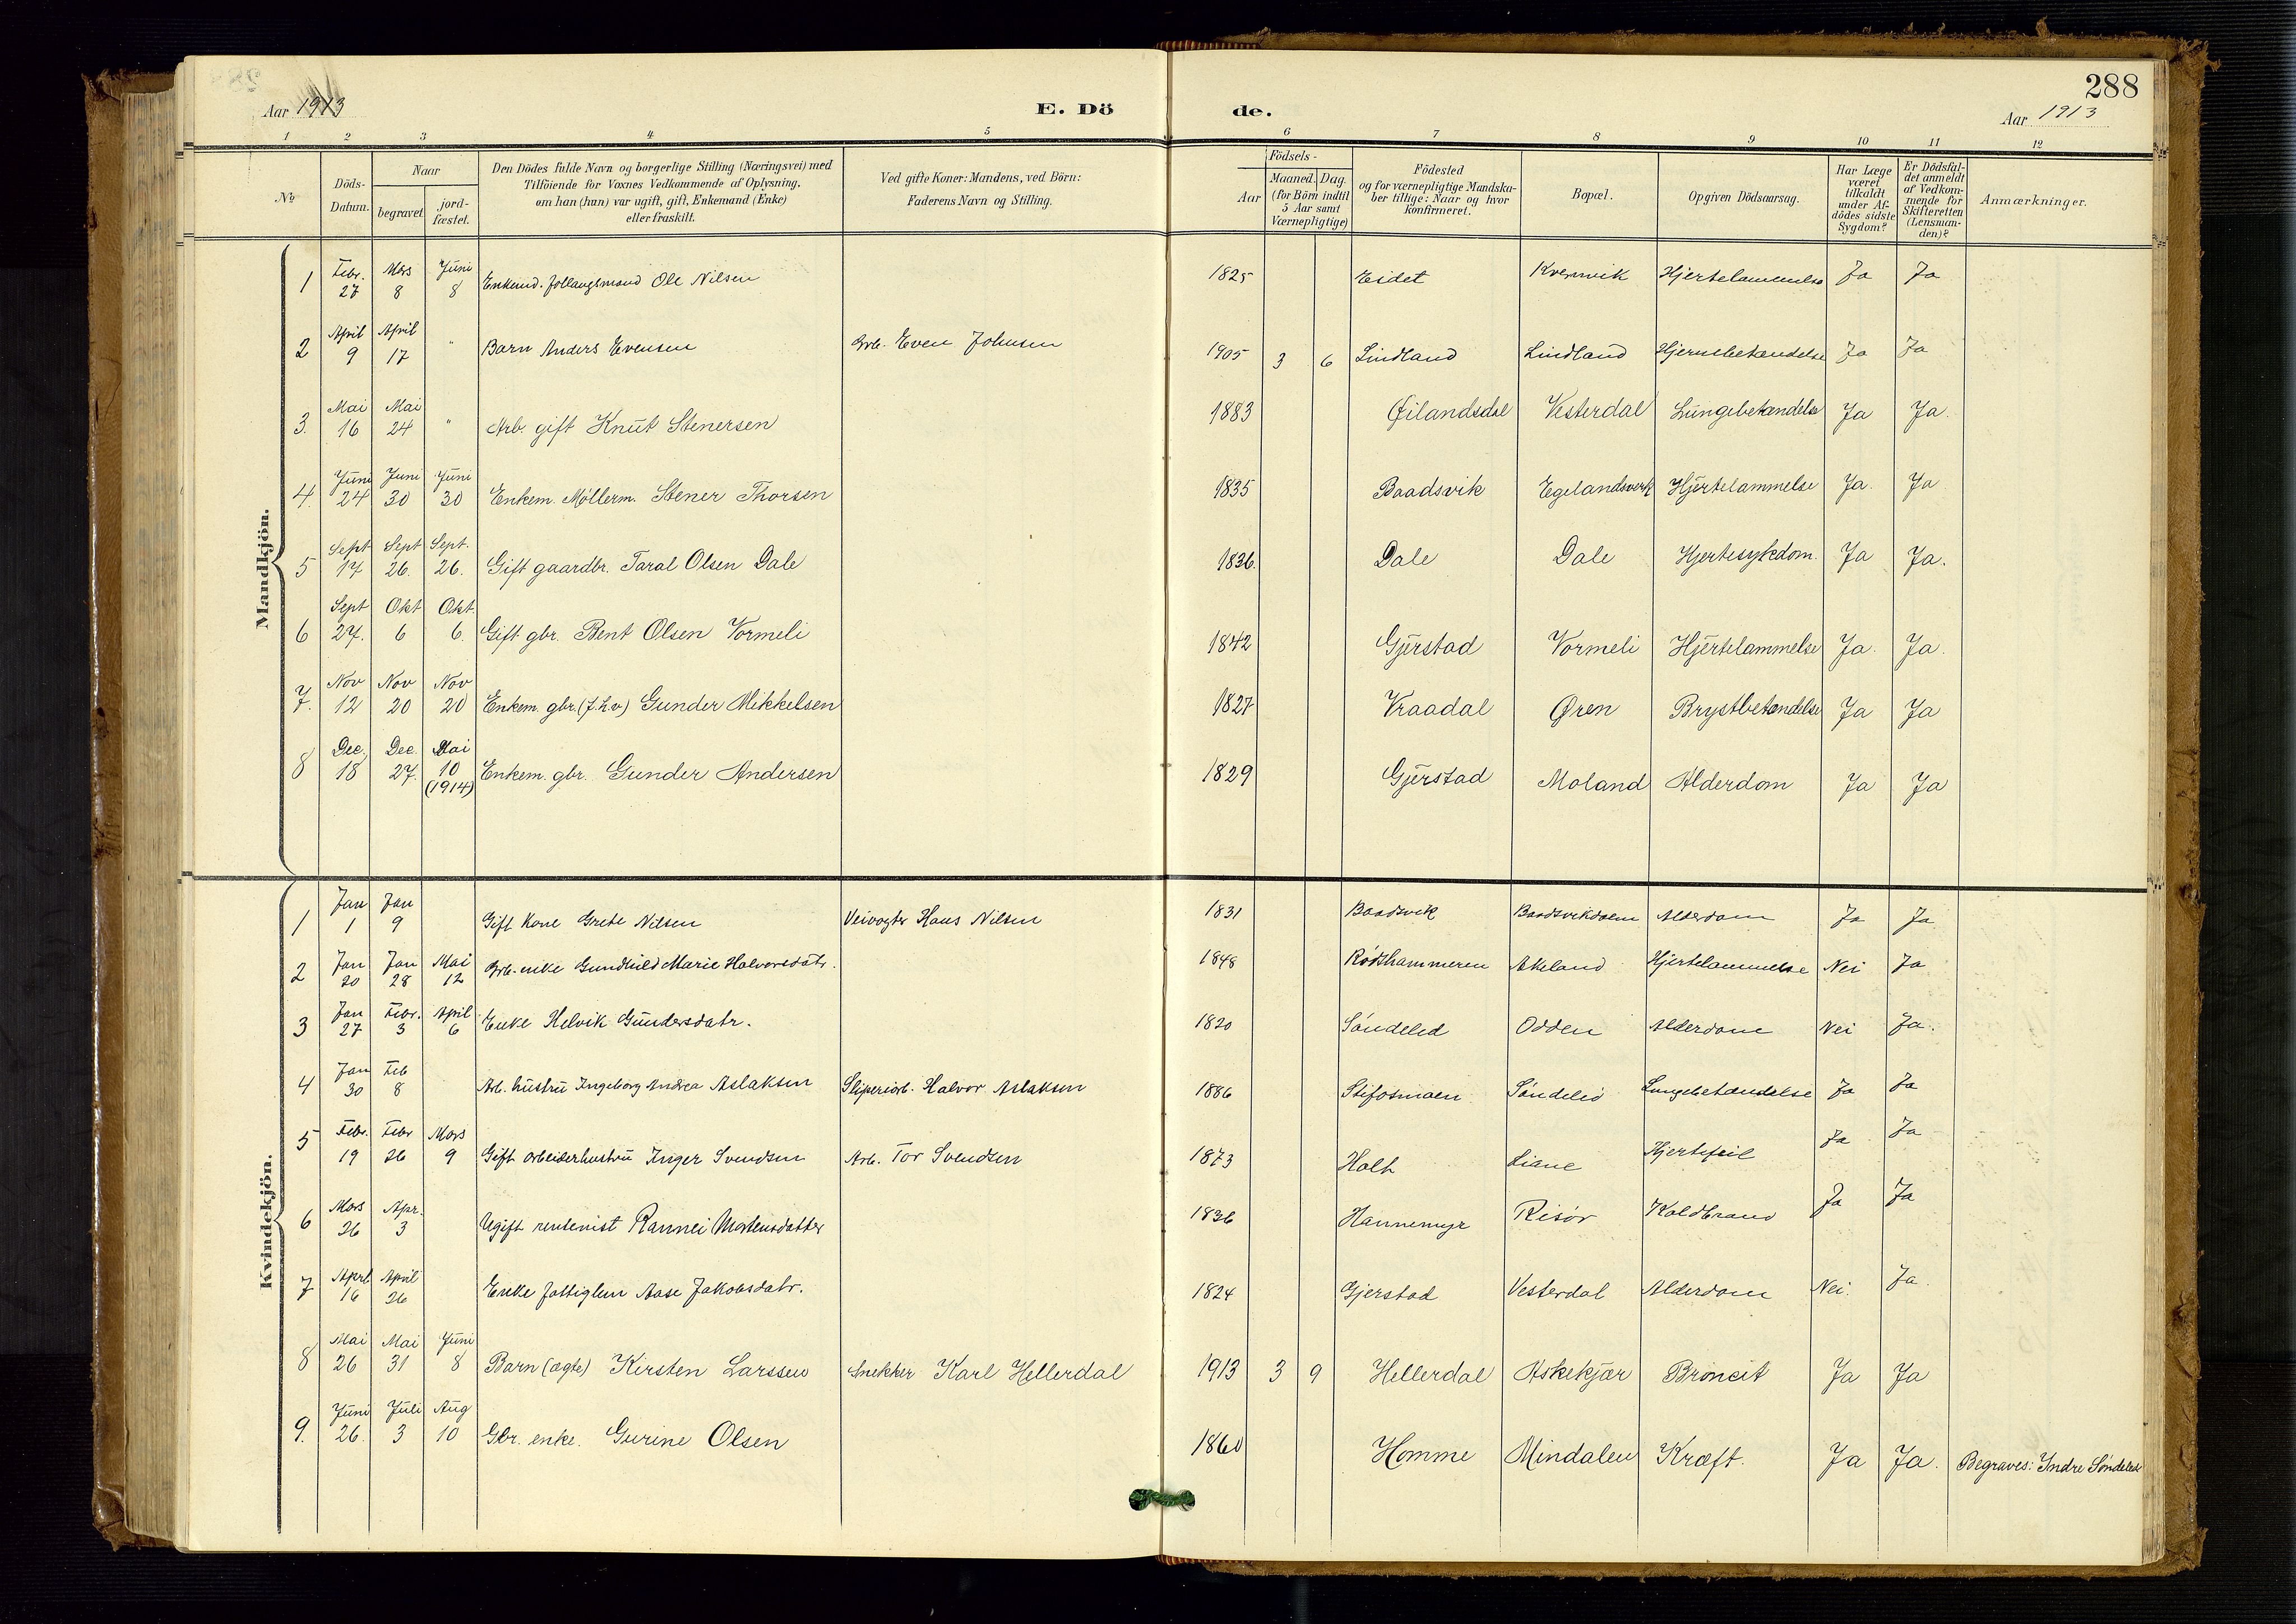 288
Aar 1913 E. Dö de. Aar 1913
1 2 3 4 5 6 7 8 9 10 11 12
No
Döds-Datum.
Naar
begravet
jord-fæstet.
Den Dödes fulde Navn og borgerlige Stilling (Næringsvei) med
Tilföiende for Voxnes Vedkommende af Oplysning,
om han (hun) var ugift, gift, Enkemand (Enke)
eller fraskilt.
Ved gifte Koner: Mandens, ved Börn:
Faderens Navn og Stilling.
Födsels-
Aar
Maaned. Dag.
(for Börn indtil
5 Aar samt
Værnepligtige)
Födested
og for værnepligtige Mandska-
ber tillige: Naar og hvor
konfirmeret.
Bopæl.
Opgiven Dödsaarsag.
Har Læge
været
tilkaldt
under Af-
dödes sidste
Sygdom?
Er Dödsfal-
det anmeldt
af Vedkom-
mende for
Skifteretten
(Lensman-
den)?
Anmærkninger.
Mandkjön.
1 Febr. 27 Mars 8 Juni 8 Enkemd. Ole Nilsen 1825 Eidet Kvernvik Hjertelammelse Ja Ja
2 April 9 April 17 " Barn Anders Evensen Arb. Even Johnsen 1905 3 6 Lindland Lindland Hjernebetændelse Ja Ja
3. Mai 16 Mai 24 " Arb. gift Knut Stenersen 1883 Øilandsdal Vesterdal Lungebetændelse Ja Ja.
4. Juni 24 Juni 30 Juni 30 Enkem. Møllerm. Stener Thorsen 1835 Baadsvik Egelandsverk Hjertelammelse Ja. Ja
5 Sept 17 Sept 26. Sept. 26. Gift gaardbr. Taral Olsen Dale 1836. Dale Dale Hjertesykdom. Ja Ja.
6 Sept 27. Okt 6 Okt. 6. Gift gbr. Bent Olsen Vormeli 1842 Gjerstad Vormeli Hjertelammelse Ja. Ja.
7. Nov 12 Nov 20 Nov 20 Enkem. gbr. (f.h.v) Gunder Mikkelsen 1827 Vraadal Øren Brystbetændelse Ja Ja
8 Dec. 18 Dec. 27. Mai 10 (1914) Enkem. gbr. Gunder Andersen 1829 Gjerstad Moland Alderdom Ja Ja
Kvindekjön.
1 Jan 1 Jan 9 Gift Kone Grete Nilsen Veivogter Hans Nilsen 1831 Baadsvik Baadsvikdalen Alderdom Ja Ja
2 Jan 20 Jan 28 Mai 12 Arb. enke Gundhild Marie Halvorsdatr. 1848 Rødshammeren Akeland Hjertelammelse Nei Ja
3 Jan 27 Febr. 3 April 6 Enke Helvik Gundersdatr. 1820 Søndeled Odden Alderdom Nei Ja.
4 Jan 30 Feb 8 Arb. hustru Ingeborg Andrea Aslaksen Sliperiarb. Halvor Aslaksen 1886 Stifosmoen Søndeled Lungebetændelse Ja Ja
5 Febr. 19 Febr 26 Mars 9 Gift arbeiderhustru Inger Svendsen Arb. Tor Svendsen 1873 Holt Liane Hjertefeil Ja Ja
6 Mars 26 Apr. 3 Ugift rentenist Rannei Mortensdatter 1836 Hannemyr Risør Koldbrand Ja Ja
7 April 16 April 26 Enke fattiglem Aase Jakobsdatr. 1824 Gjerstad Vesterdal Alderdom Nei. Ja.
8 Mai 26 Mai 31 Juni 8 Barn (ægte) Kirsten Larssen Snekker Karl Hellerdal 1913 3 9 Hellerdal Askekjær Broncit Ja Ja
9. Juni 26. Juli 3 Aug 10 Gbr. enke. Gurine Olsen 1860 Homme Mindalen Kræft. Ja Ja. Begraves: Indre Søndeled